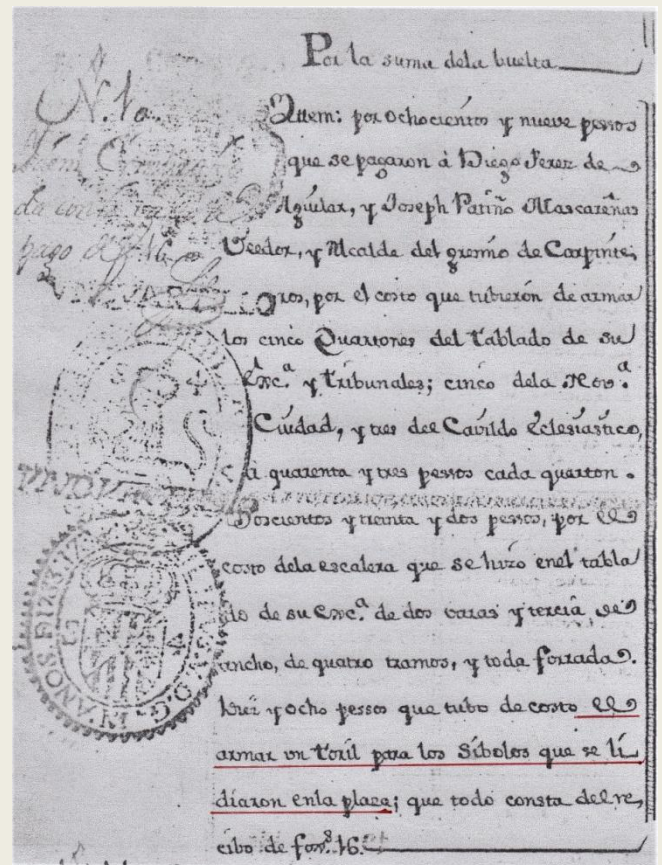 Por la suma dela buelta
N. 10.
Ittem: por ochocientos y nueve pessos
que se pagaron à Diego Perez de
Aguilar, y Joseph Patiño Mascareñas
Veedor, y Alcalde del gremio de Carpinte,
ros, por el costo que tubieron de armar
los cinco Quartones del tablado de su
Exc.ª y tribunales; cinco dela Nov.ª
Ciudad, y tres del Cavildo Eclesiastico,
a quarenta y tres pessos cada quarton.
Doscientos y treinta y dos pessos, por el
costo dela escalera que se hizo enel tabla
do de su Exc.ª de dos varas y tercia de
ancho, de quatro tramos, y toda forrada.
Diez y ocho pessos que tubo de costo el
armar un toril para los Síbolos que se li
diaron enla plaza; que todo consta del re,
cibo de fox.s 16.